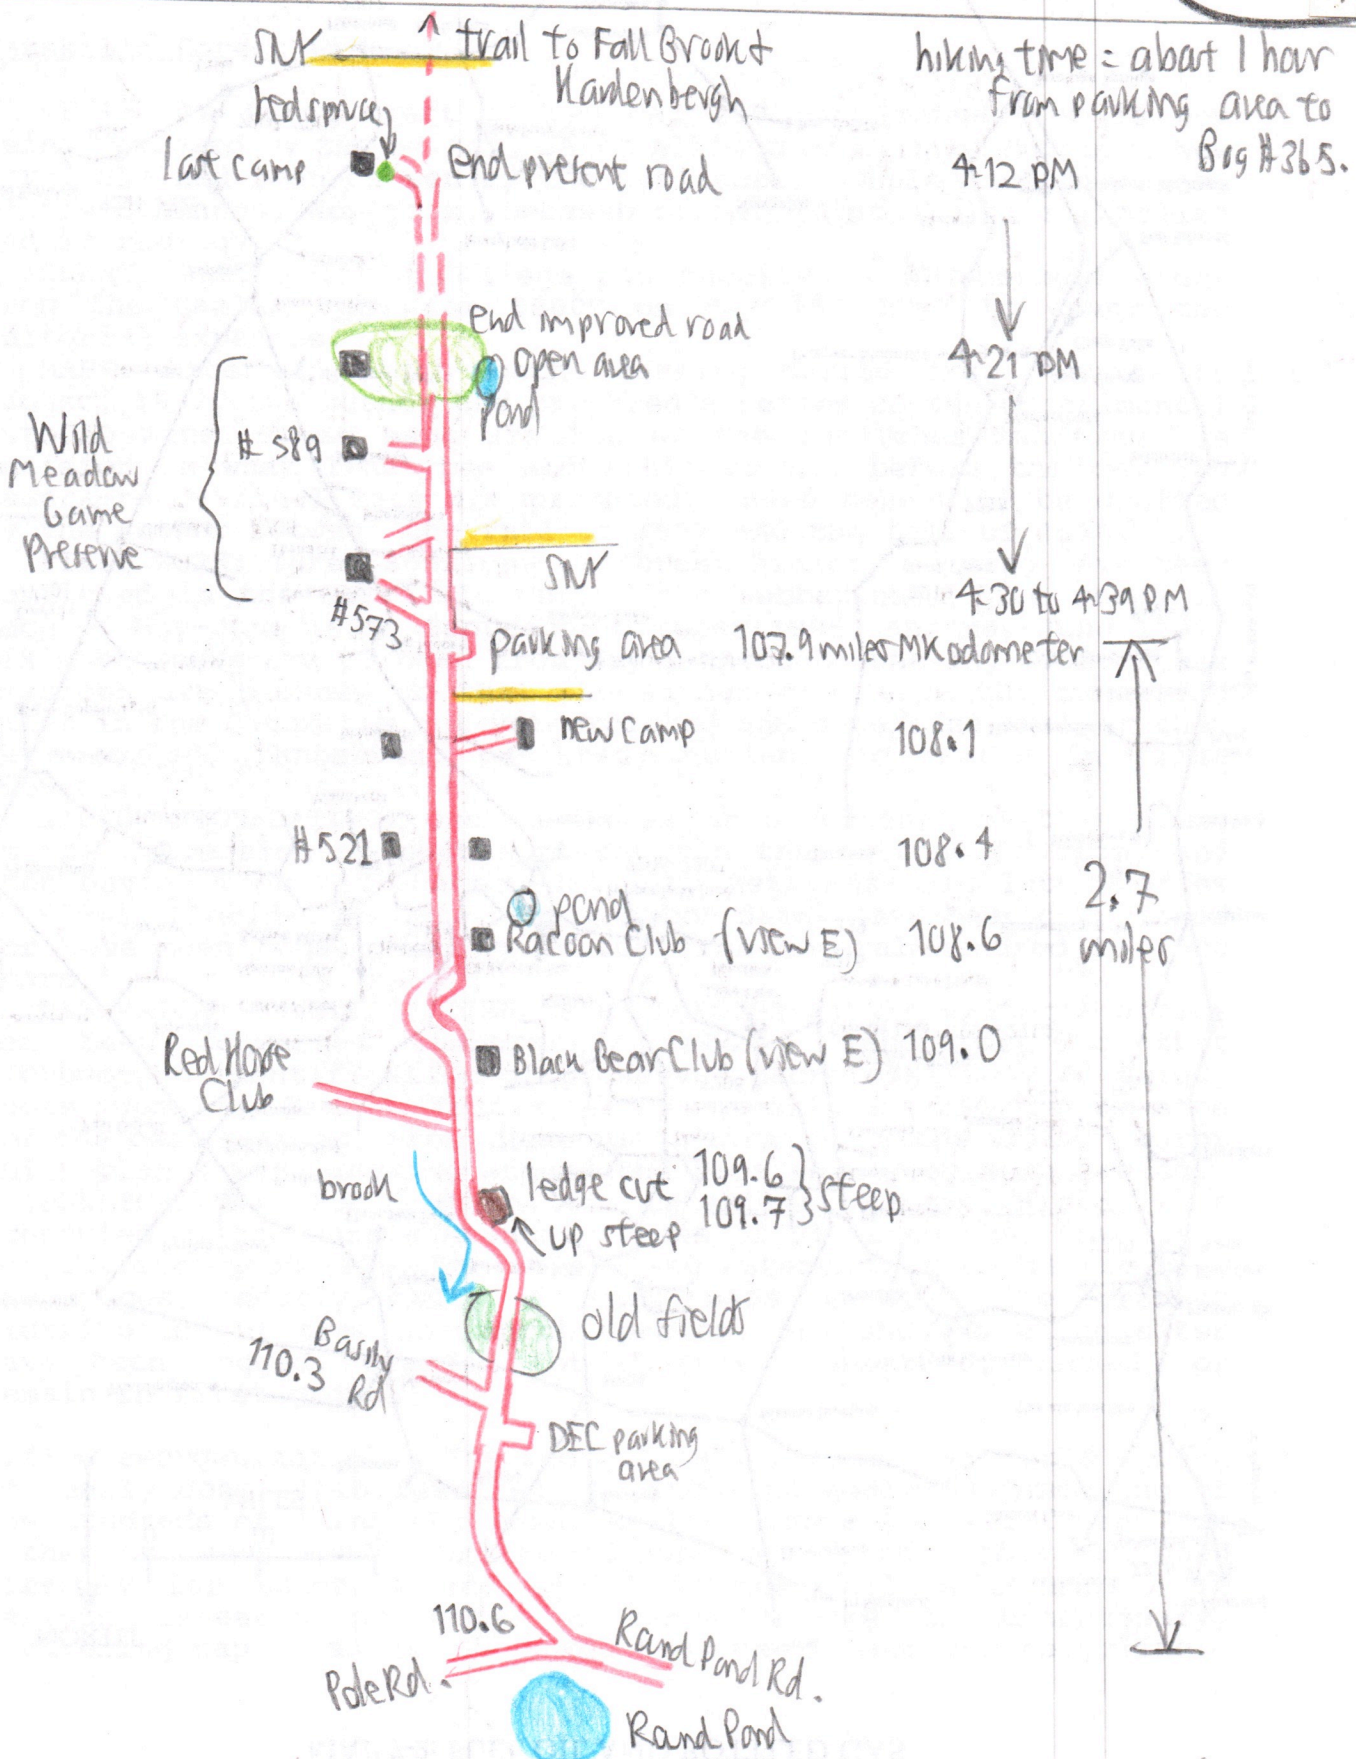 SNY
trail to Fall Brook &
Hardenbergh
hiking time = about 1 hour
from parking area to
Bog #365.
red spruce
last camp
end present road
4:12 PM
end improved road
open area
pond
4:21 PM
Wild
Meadow
Game
Preserve
#589
SNY
#573
4:30 to 4:39 PM
parking area
107.9 miles MK odometer
new camp
108.1
#521
108.4
2.7
miles
pond
Racoon Club (view E)
108.6
Red Horse
Club
Black Bear Club (view E)
109.0
brook
ledge cut 109.6
109.7
steep
up steep
old fields
Basily
110.3
Rd
DEC parking
area
110.6
Pole Rd.
Rand Pond Rd.
Rand Pond